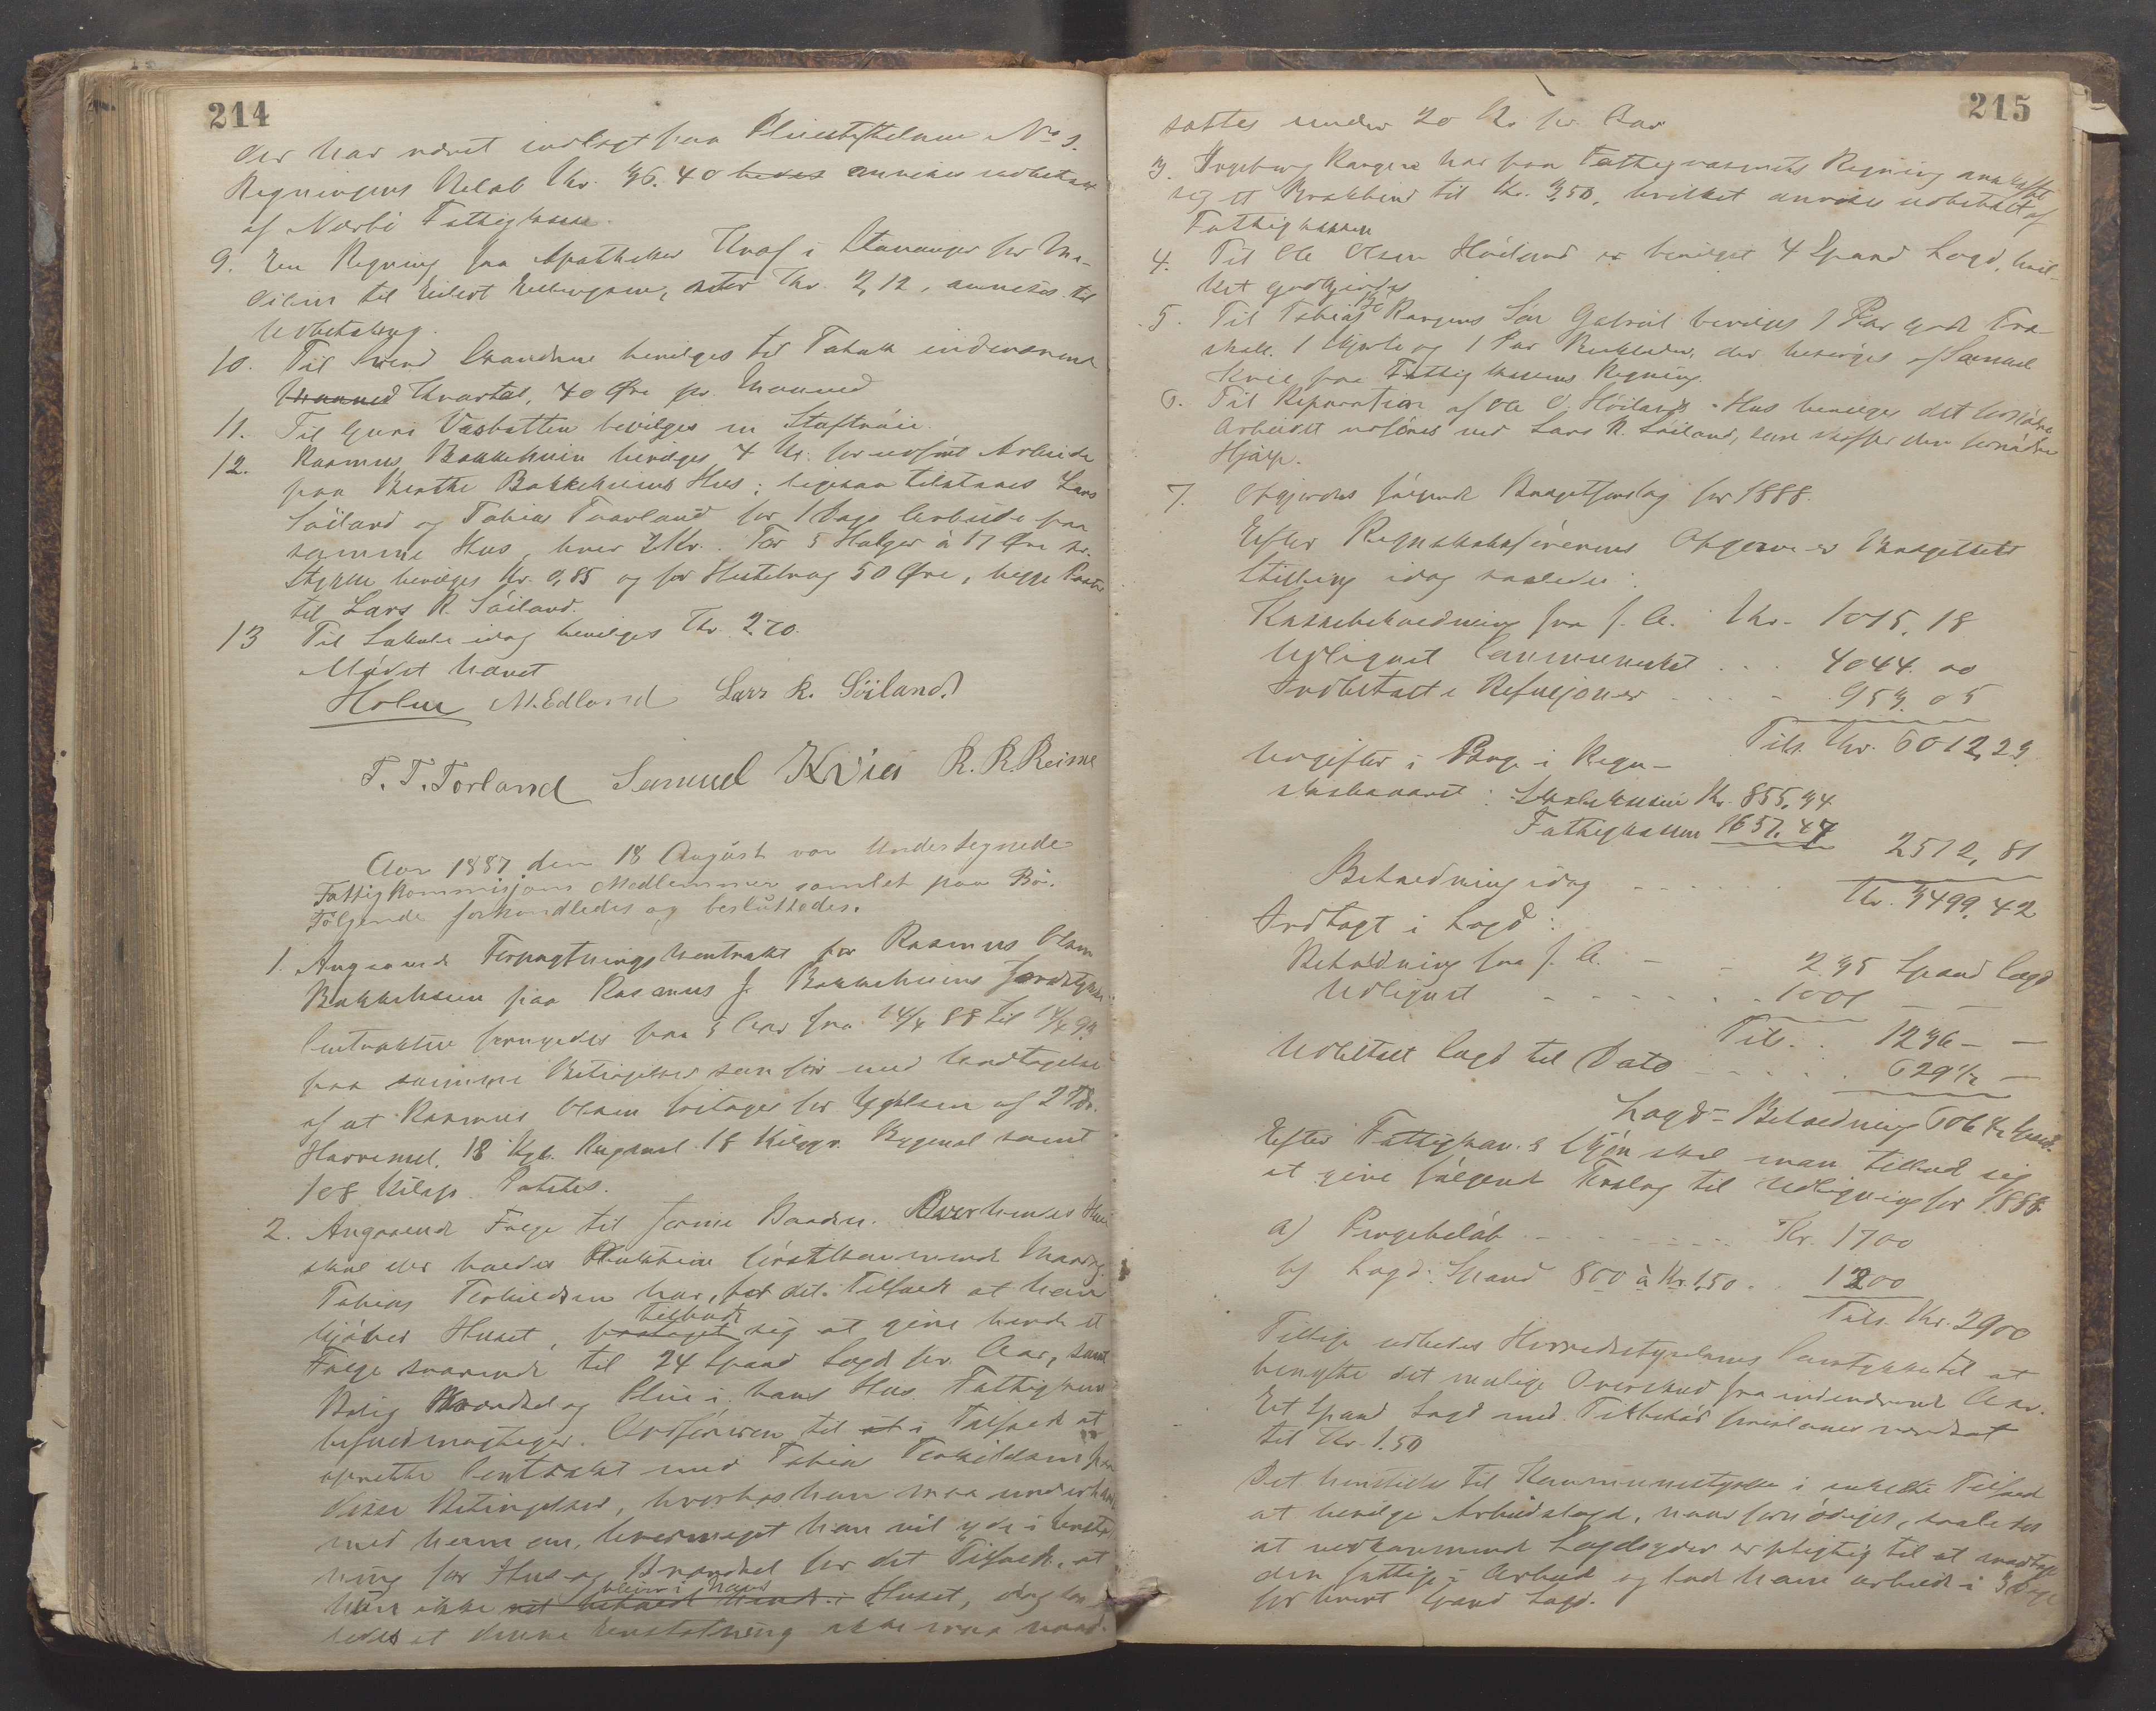 214
der har været indlagt paa Pleiestiftelsen No 3.
Regningens Beløb Kr. 36.40 bedes anvises udbetalt
af Nærbø Fattigkasse.
9. En Regning fra Apotheker Krog i Stavanger for Me-
dicin til Eilert Ellingsen, stor Kr. 2,12, anvises til
Udbetaling.
10. Til Svend bevilges til Tobak indeværende
Maaned Kvartal, 40 Øre pr. Maaned
11. Til Guri Vasbotten bevilges en
12. Rasmus Bakkehuin bevilges 4 Kr. for udført Arbeide
paa Berthe Bakkehuins Hus; ligesaa tilstaaes Lars
Söiland og Tobias Tvorland for 1 Dags Arbeide paa
samme Hus, hver 2 Kr. For 5 Halger à 17 Øre pr.
Stykke bevilges Kr. 0,85 og for 50 Øre, begge Poster
til Lars R. Söiland.
13 Til Lokale idag bevilges Kr. 2.70.
Mödet hævet
Holm M. Edland Lars R. Söiland
T. T. Torland Samuel Kvia R. R. Reime
Aar 1887 den 18 August var Undertegnede
Fattigkommisjons Medlemmer samlet paa Bö.
Følgende forhandledes og besluttedes.
1. Angaaende Forpagtningskontrakt for Rasmus Olsen
Bakkehuin paa Rasmus J. Bakkehuins Jordstykke.
Contrakten fornyedes paa 5 Aar fra 14/4 88 til 14/4 93
paa samme Betingelser som før med Undtagelse
af at Rasmus Olsen fritages for Ydelsen af 2 Tdr.
Havremel, 18 Kgr. Rugmel 18 Kilogr. Bygmel samt
108 Kilogr. Potetes.
2. Angaaende Følge til Jorine Baadsen. Over hendes Hus
skal der holdes Auktion førstkommende Mandag.
Tobias Terkildsen har, for det Tilfælde at han
kjøber Huset, forlagt tilbudt sig at give hende et
Følge svarende til 24 Spand Lægd pr. Aar, samt
Bolig Brændsel og Pleie i hans Hus. Fattigkom.
befuldmægtiger Ordføreren til at i Tilfælde at
oprette Contrakt med Tobias Terkildsen paa
disse Betingelser, hvorhos han maa underhandle
med ham om, hvormeget han vil yde i Erstat-
ning for Hus og Brændsel for det Tilfælde, at
hun ikke vil behold hende i bliver i hans Huset, dog saa-
ledes at denne Erstatning ikke maa ned-
215
sættes under 20 Kr. pr. Aar
3. Ingeborg Rangen har paa Fattigvæsenets Regning anskaffet
sig et Brokbind til Kr. 3,50, hvilket anvises udbetalt af
Fattigkassen
4. Til Ole Olsen Höiland er bevilget 4 Spand Lægd, hvil-
ket godkjendes
5. Til Tobias Bö Rangens Søn Gabriel bevilges 1 Par gode Træ-
skoe, 1 Skjorte og 1 Par Buxklæder, der besørges af Samuel
Kvie paa Fattigkassens Regning.
6. Til Reparation af Ole O. Höilands Hus bevilges det fornødne
Arbeidet udføres ved Lars R. Söiland, som skaffer den fornødne
Hjælp.
7. Opgjordes følgende Budgetforslag for 1888.
Efter Regnskabsførerens Opgave er Budgettets
Stilling idag saaledes:
Kassebeholdning fra f. A. Kr. 1015,18
Udlignet Communeskat . . . 4044.00
Indbetalte Refusjoner . . . 953.05
Tils. Kr. 6012,23
Udgifter i Penge i Regn-
skabsaaret: Skolekassen Kr. 855.34
Fattigkassen 1657.47
2512,81
Beholdning idag . . . . . Kr. 3499.42
Indtægt i Lægd:
Beholdning fra f. A. - - 235 Spand Lægd
Udlignet - - - - - - 1001 - -
Tils. . 1236 - -
Udbetalt Lægd til Dato - - - - - 629 1/2 -
Lægd-Beholdning 606 1/2 Spand.
Efter Fattigkom.s Skjøn skal man tillade sig
at give følgende Forslag til Udligning for 1888.
a) Pengebeløb - - - - - - - Kr. 1700
b) Lægd: Spand 800 à Kr. 1.50 . 1200
Tils. Kr. 2900
Tillige udbedes Herredsstyrelsens Samtykke til at
benytte det mulige Overskud fra indeværende Aar.
Et Spand Lægd med Tilbehør foreslaaes værdsat
til Kr. 1.50
Det henstilles til Kommunestyrelsen i enkelte Tilfælde
at bevilge Arbeidslægd, naar fornødiges, saaledes
at vedkommende Lægdsyder er pligtig til at modtage
den fattige i Arbeide og lade ham arbeide i 3 Dage
for hvert Spand Lægd.